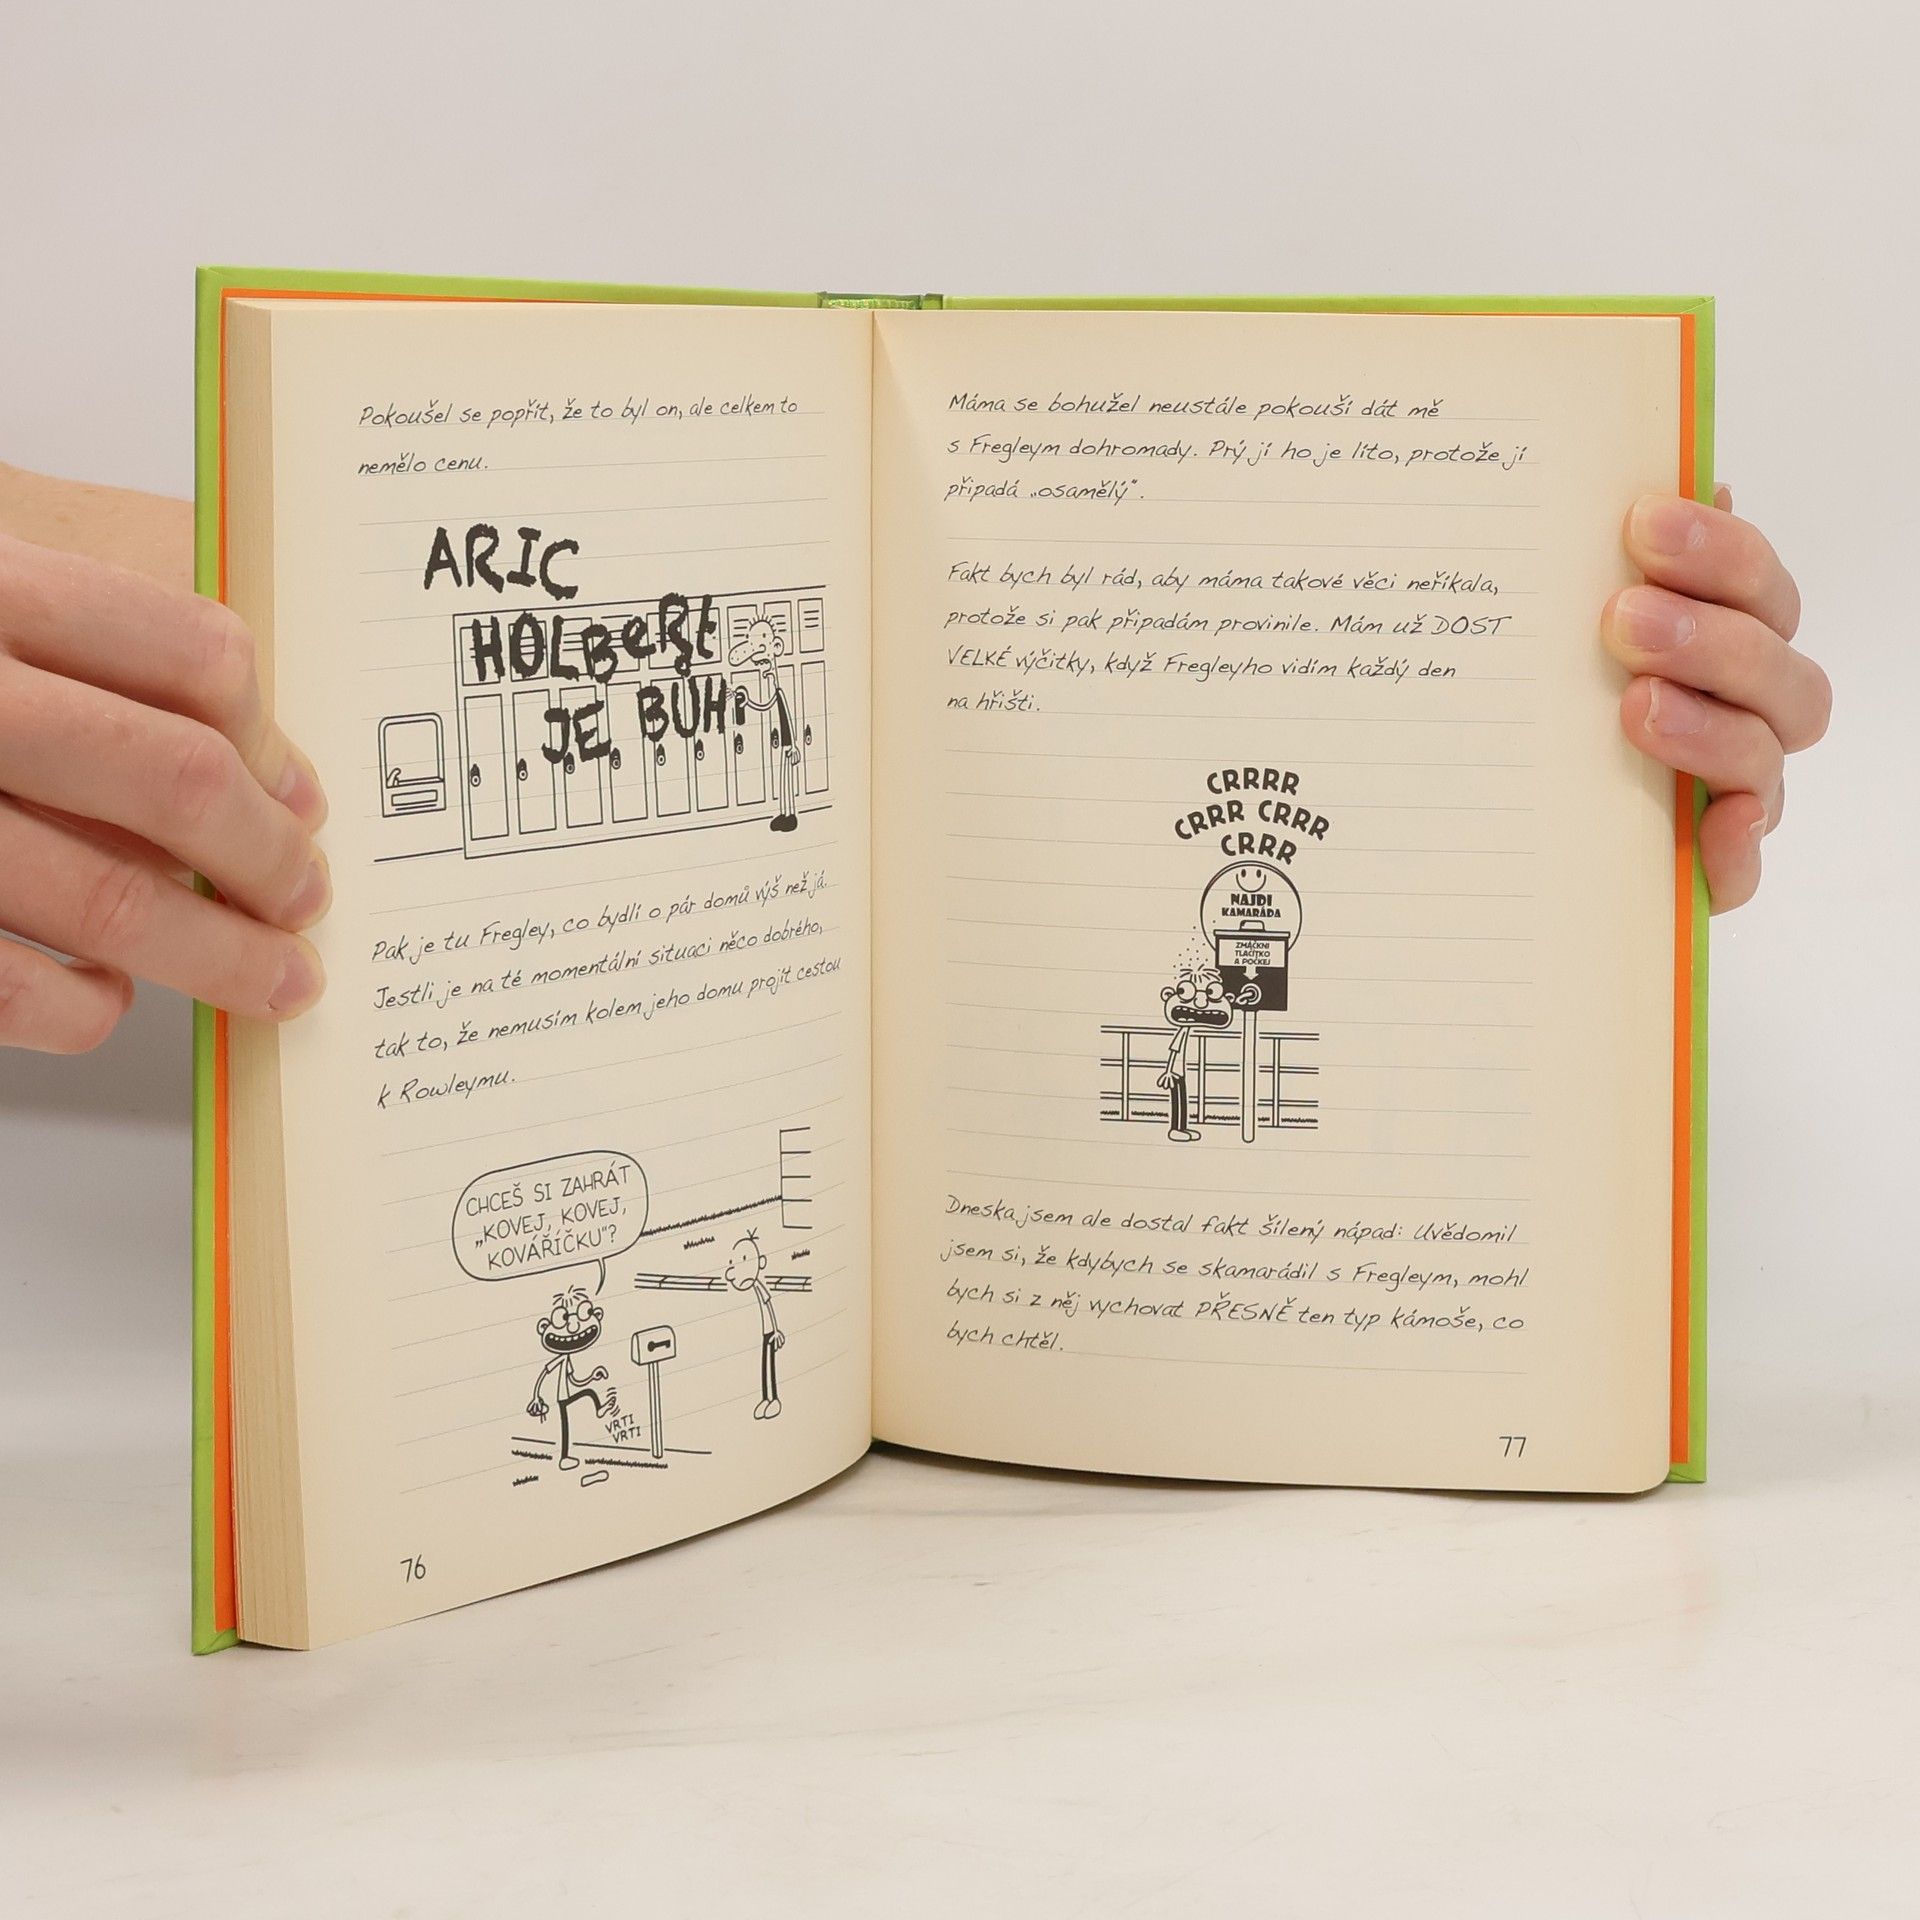 Pokoušel se popřít, že to byl on, ale celkem to
nemělo cenu.
ARIC
HOLBeRt
JE BUH?
Pak je tu Fregley, co bydlí o pár domů výš než já.
Jestli je na té momentální situaci něco dobrého,
tak to, že nemusím kolem jeho domu projít cestou
k Rowleymu.
CHCEŠ SI ZAHRÁT
„KOVEJ, KOVEJ,
KOVÁŘÍČKU"?
VRTI
VRTI
76
Máma se bohužel neustále pokouší dát mě
s Fregleym dohromady. Prý jí ho je líto, protože jí
připadá „osamělý".
Fakt bych byl rád, aby máma takové věci neříkala,
protože si pak připadám provinile. Mám už DOST
VELKÉ výčitky, když Fregleyho vidím každý den
na hřišti.
CRRRR
CRRR CRRR
CRRR
NAJDI
KAMARÁDA
ZMÁČKNI
TLAČÍTKO
A POČKEJ
Dneska jsem ale dostal fakt šílený nápad: Uvědomil
jsem si, že kdybych se skamarádil s Fregleym, mohl
bych si z něj vychovat PŘESNĚ ten typ kámoše, co
bych chtěl.
77